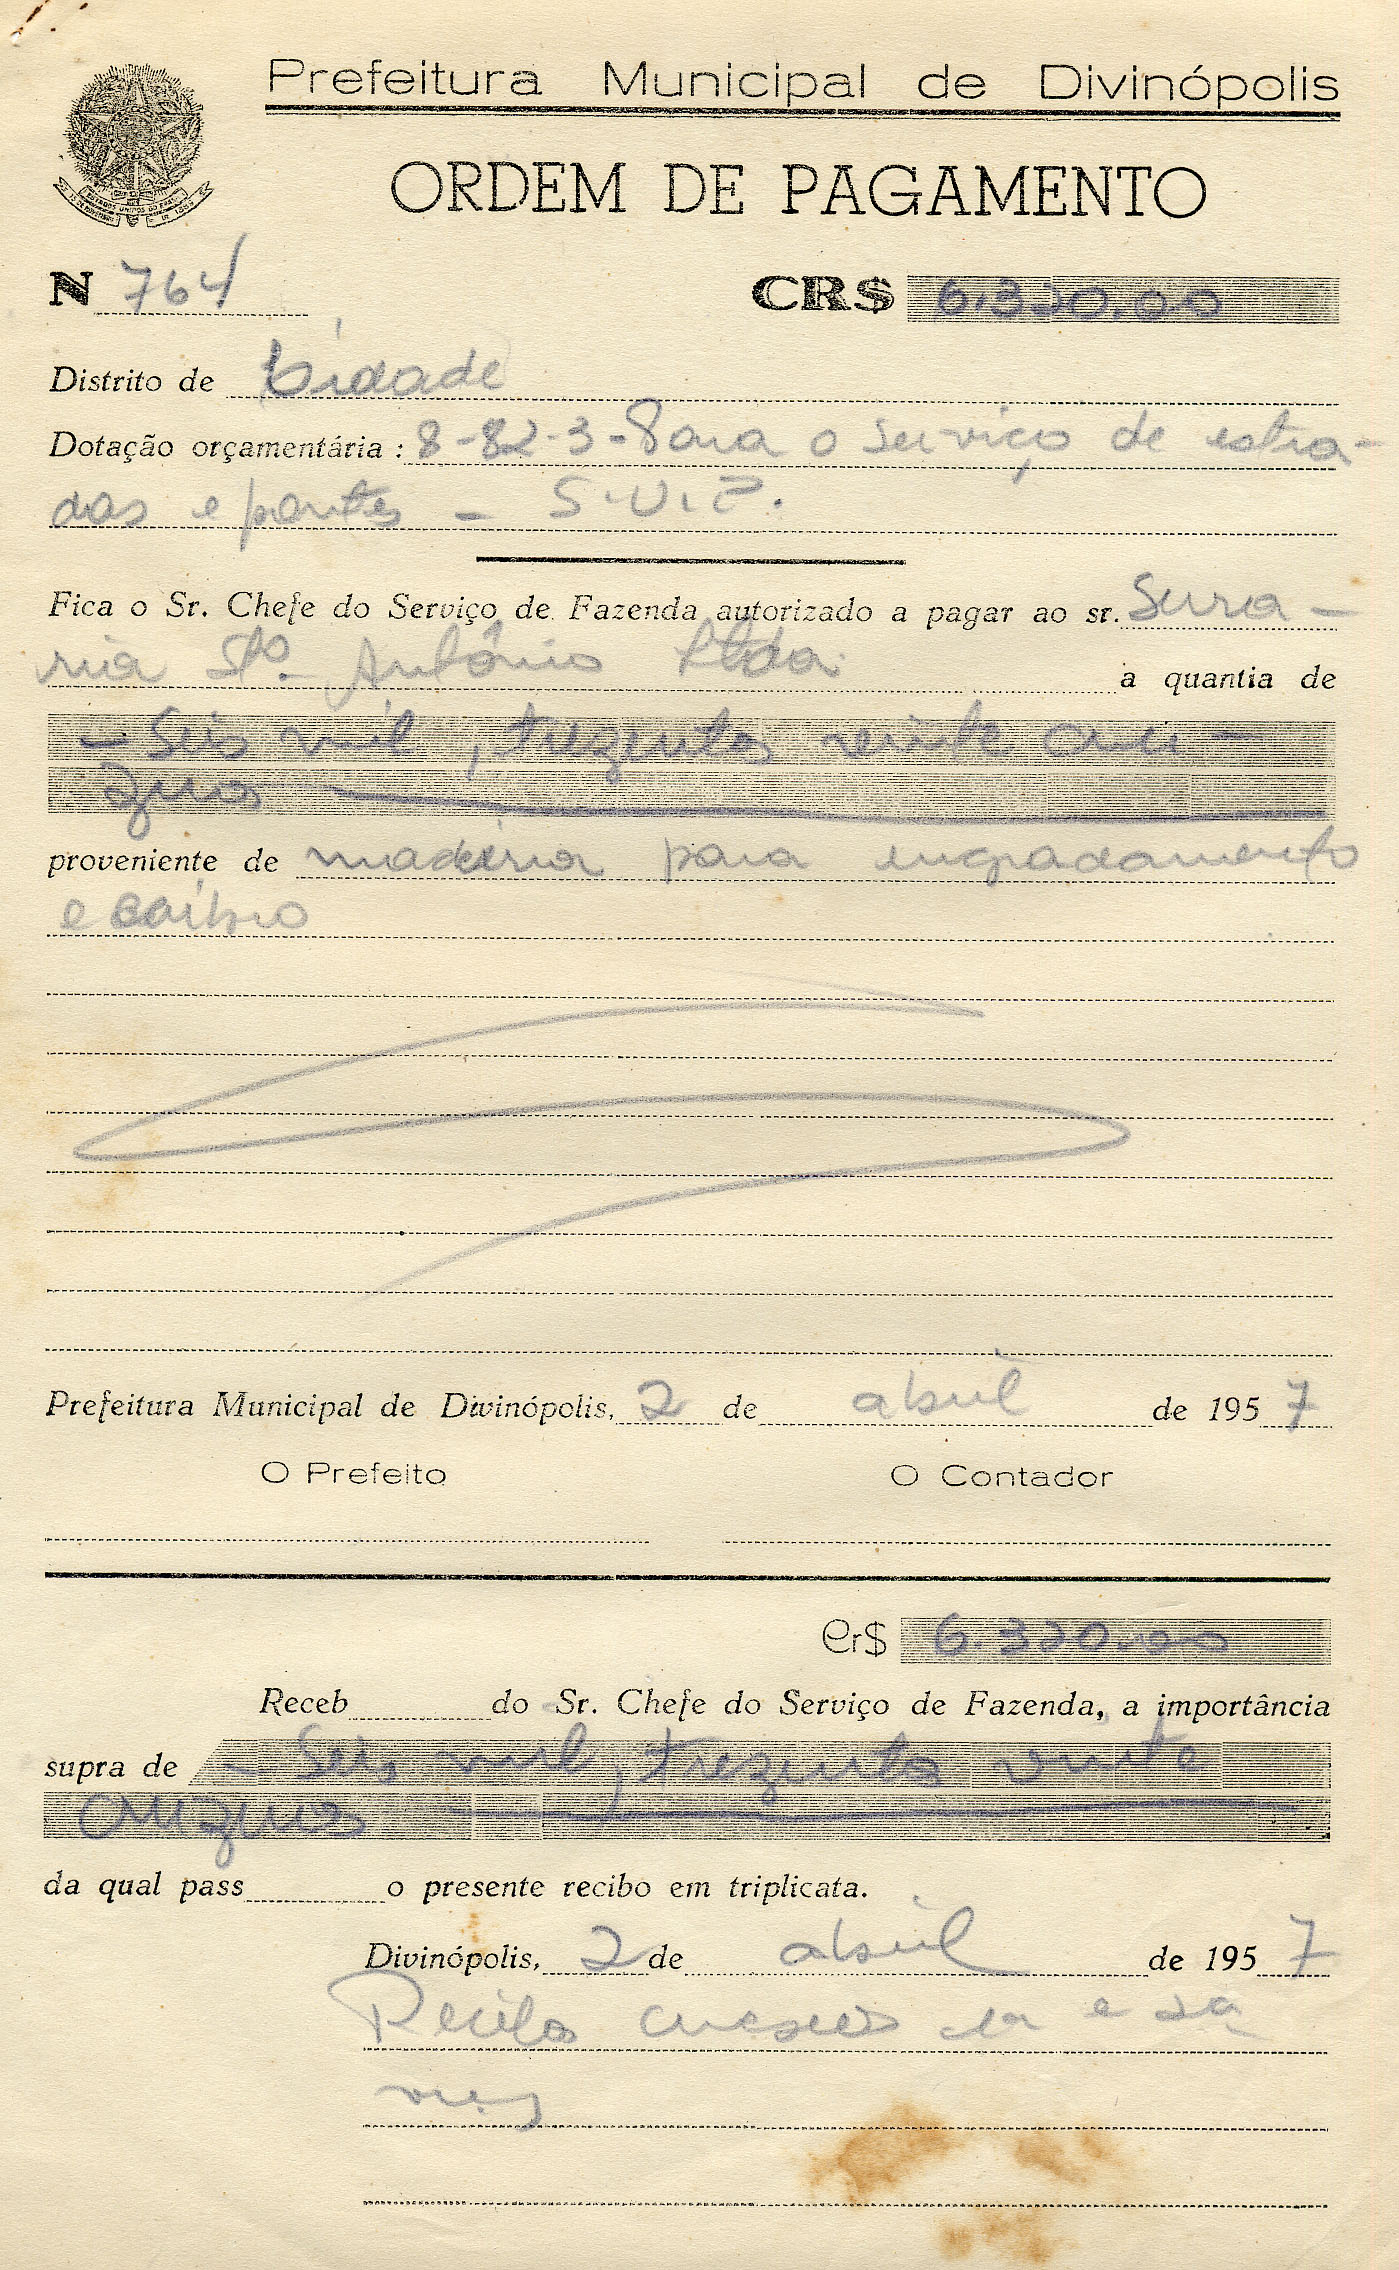 Prefeitura Municipal de Divinópolis
ORDEM DE PAGAMENTO
N 764 CR$ 6.320.00
Distrito de Cidade
Dotação orçamentária: 8-82-3-Para o serviço de estra-
das e pontes - S.V.P.
Fica o Sr. Chefe do Serviço de Fazenda autorizado a pagar ao sr. Serra-
ria Sto. Antônio Ltda. a quantia de
- Seis mil, trezentos vinte cru-
zeiros
proveniente de madeira para engradamento
e caibro
Prefeitura Municipal de Divinópolis, 2 de abril de 1957
O Prefeito O Contador
Cr$ 6.320.00
Receb do Sr. Chefe do Serviço de Fazenda, a importância
supra de - Seis mil, trezentos vinte
cruzeiros
da qual pass o presente recibo em triplicata.
Divinópolis, 2 de abril de 1957
Recibos